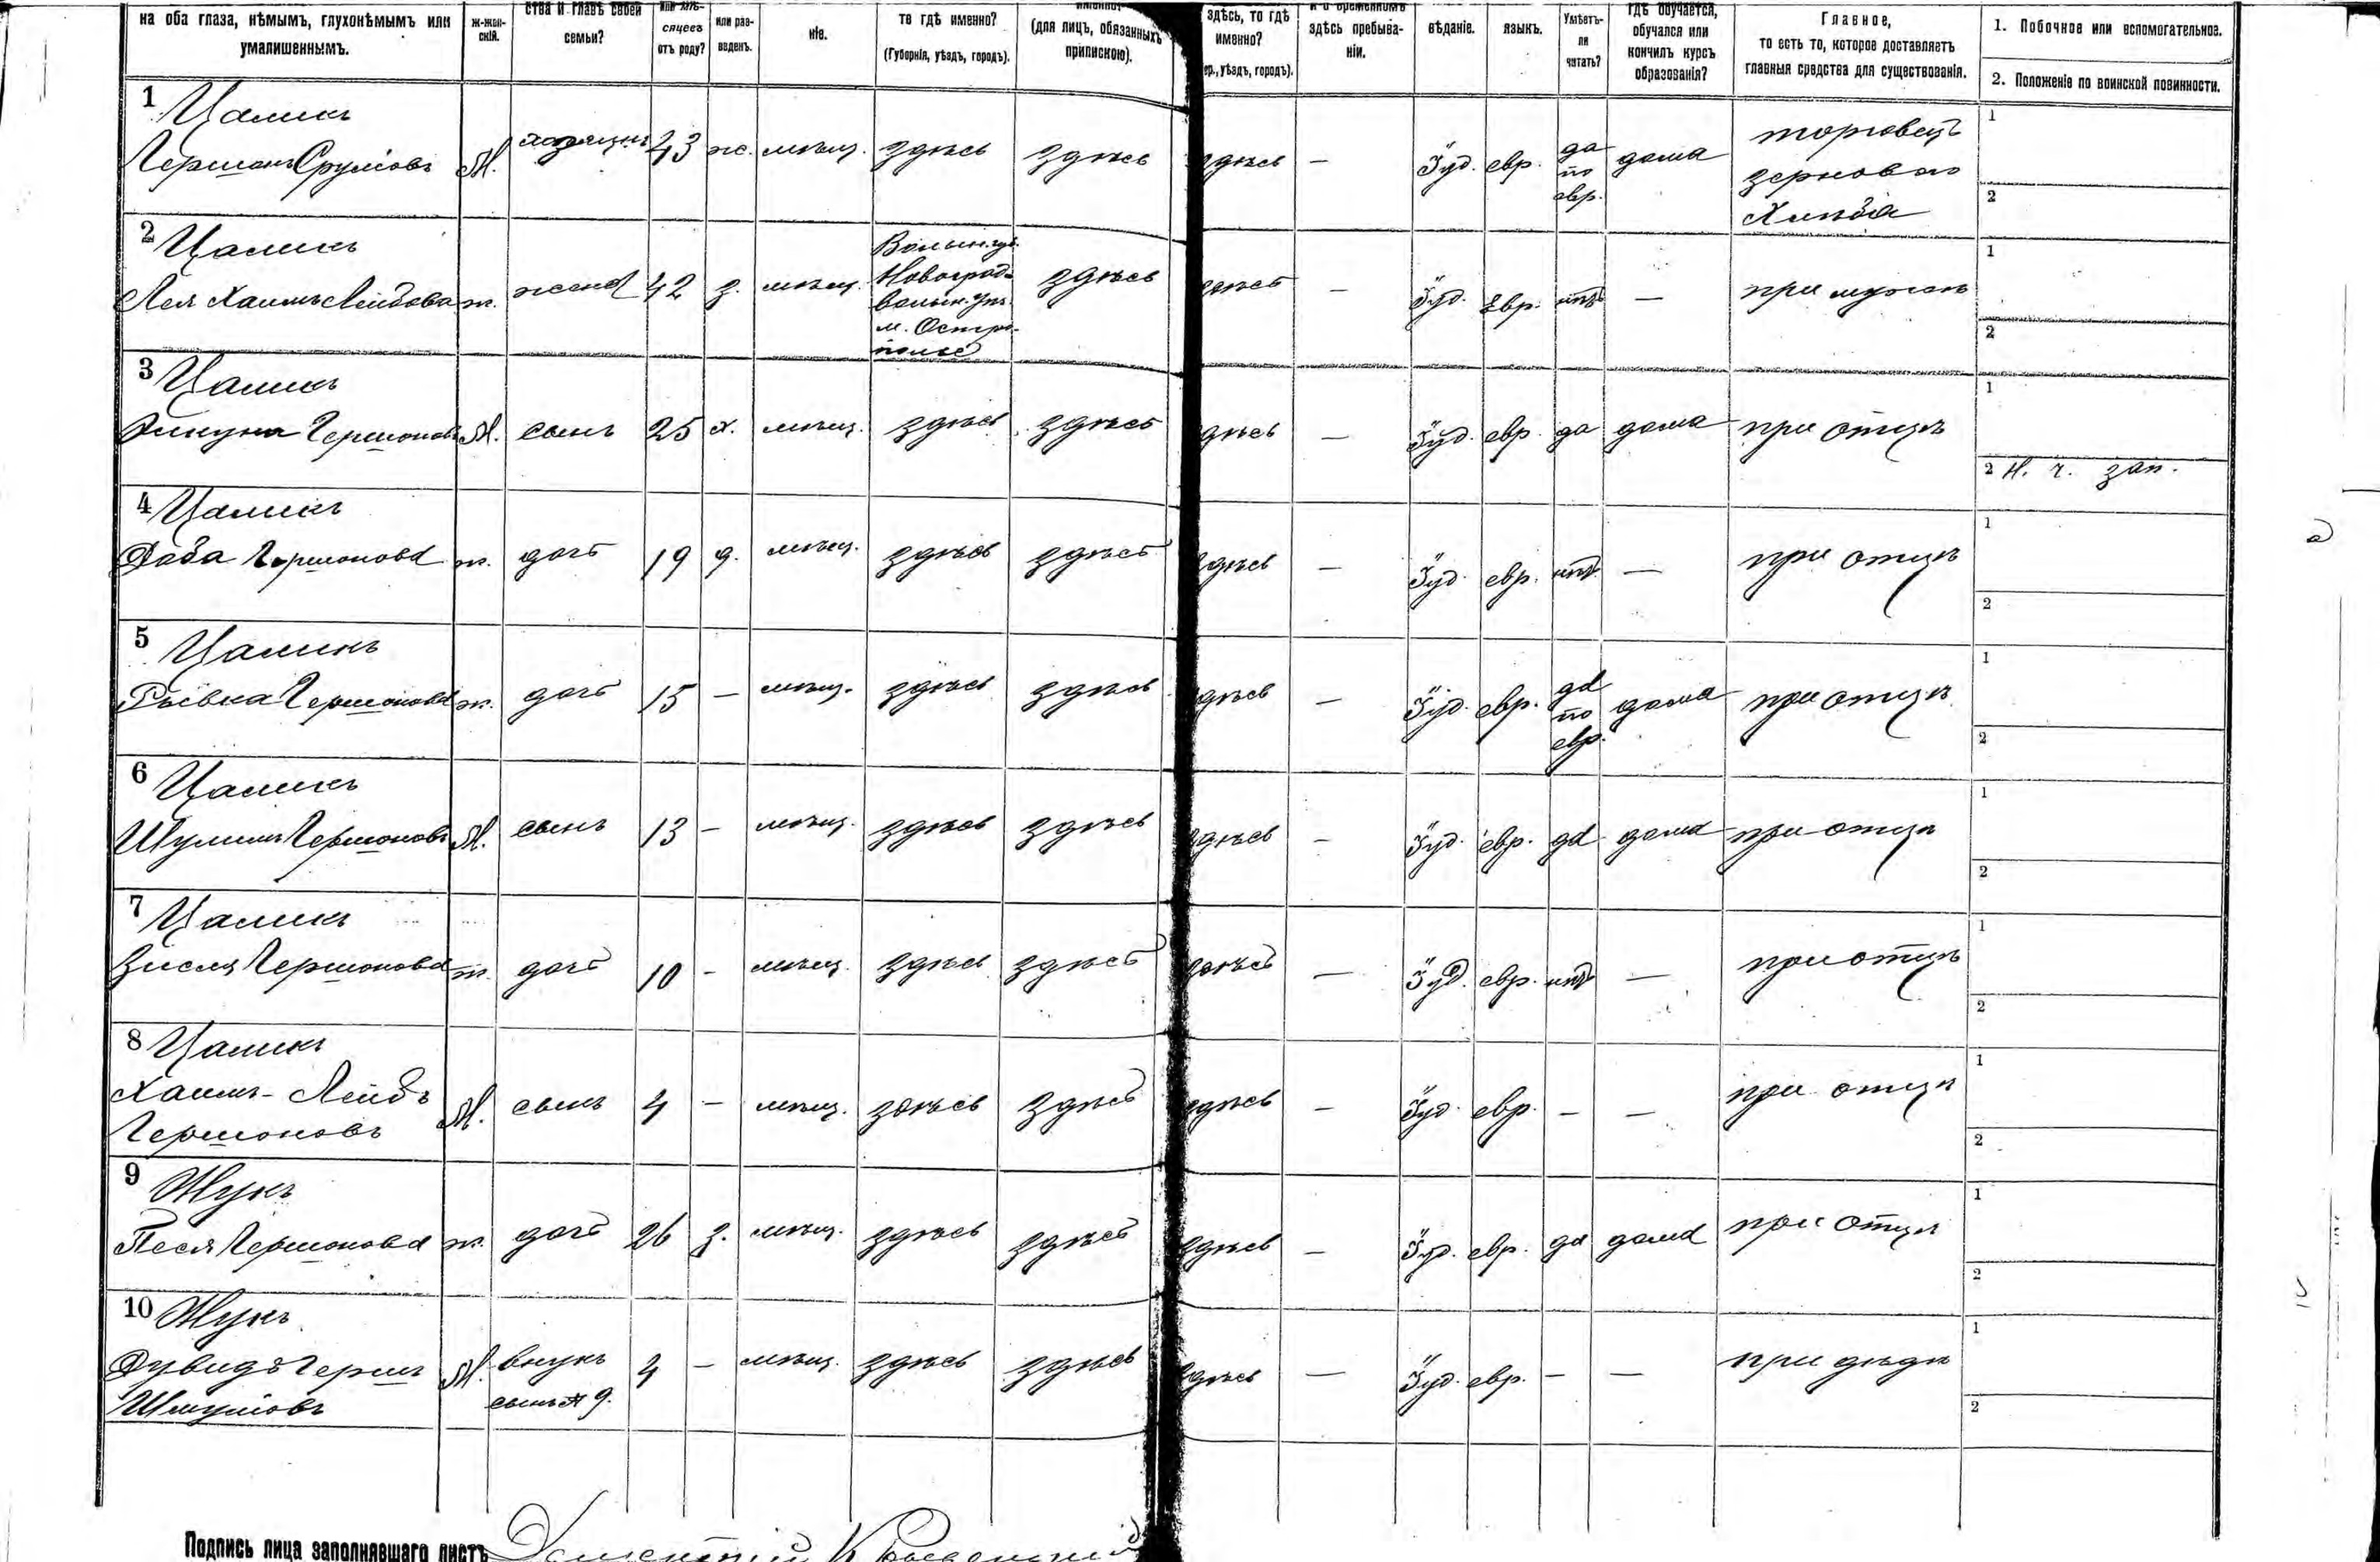 на оба глаза, нѣмымъ, глухонѣмымъ или умалишеннымъ.
ж-женскій.
ства и главѣ своей семьи?
или мѣсяцевъ отъ роду?
или разведенъ.
ніе.
то гдѣ именно? (Губернія, уѣздъ, городъ).
(для лицъ, обязанныхъ припискою).
здѣсь, то гдѣ именно? уѣздъ, городъ).
и о временномъ здѣсь пребываніи.
вѣданіе.
языкъ.
Умѣетъ-ли читать?
гдѣ обучается, обучался или кончилъ курсъ образованія?
Главное, то есть то, которое доставляетъ главныя средства для существованія.
1. Побочное или вспомогательное.
2. Положеніе по воинской повинности.
1 Цаликъ
Гершонъ Сруліовъ М. хозяинъ 43 ж. мѣщ. здѣсь здѣсь здѣсь — Іуд. евр. да по евр. дома торговецъ зернового хлѣба
1
2
2 Цаликъ
Лея Хаимъ Лейбова ж. жена 42 з. мѣщ. Волын. губ. Новоград-волын. уѣ. м. Острополье здѣсь здѣсь — Іуд. Евр. нѣтъ — при мужѣ
1
2
3 Цаликъ
Гершоновъ М. сынъ 25 х. мѣщ. здѣсь здѣсь здѣсь — Іуд. евр. да дома при отцѣ
1
2 Н. ч. зап.
4 Цаликъ
Доба Гершонова ж. дочь 19 д. мѣщ. здѣсь здѣсь здѣсь — Іуд. евр. нѣтъ — при отцѣ
1
2
5 Цаликъ
Рывка Гершонова ж. дочь 15 — мѣщ. здѣсь здѣсь здѣсь — Іуд. евр. да по евр. дома при отцѣ
1
2
6 Цаликъ
Шулимъ Гершоновъ М. сынъ 13 — мѣщ. здѣсь здѣсь здѣсь — Іуд. евр. да дома при отцѣ
1
2
7 Цаликъ
Зисля Гершонова ж. дочь 10 — мѣщ. здѣсь здѣсь здѣсь — Іуд. евр. нѣтъ — при отцѣ
1
2
8 Цаликъ
Хаимъ-Лейбъ
Гершоновъ М. сынъ 4 — мѣщ. здѣсь здѣсь здѣсь — Іуд. евр. — — при отцѣ
1
2
9 Жукъ
Песя Гершонова ж. дочь 26 з. мѣщ. здѣсь здѣсь здѣсь — Іуд. евр. да дома при отцѣ
1
2
10 Жукъ
Дувидъ Герш
Шмуліовъ М. внукъ сынъ № 9. 4 — мѣщ. здѣсь здѣсь здѣсь — Іуд. евр. — — при дѣдѣ
1
2
Подпись лица заполнявшаго листъ